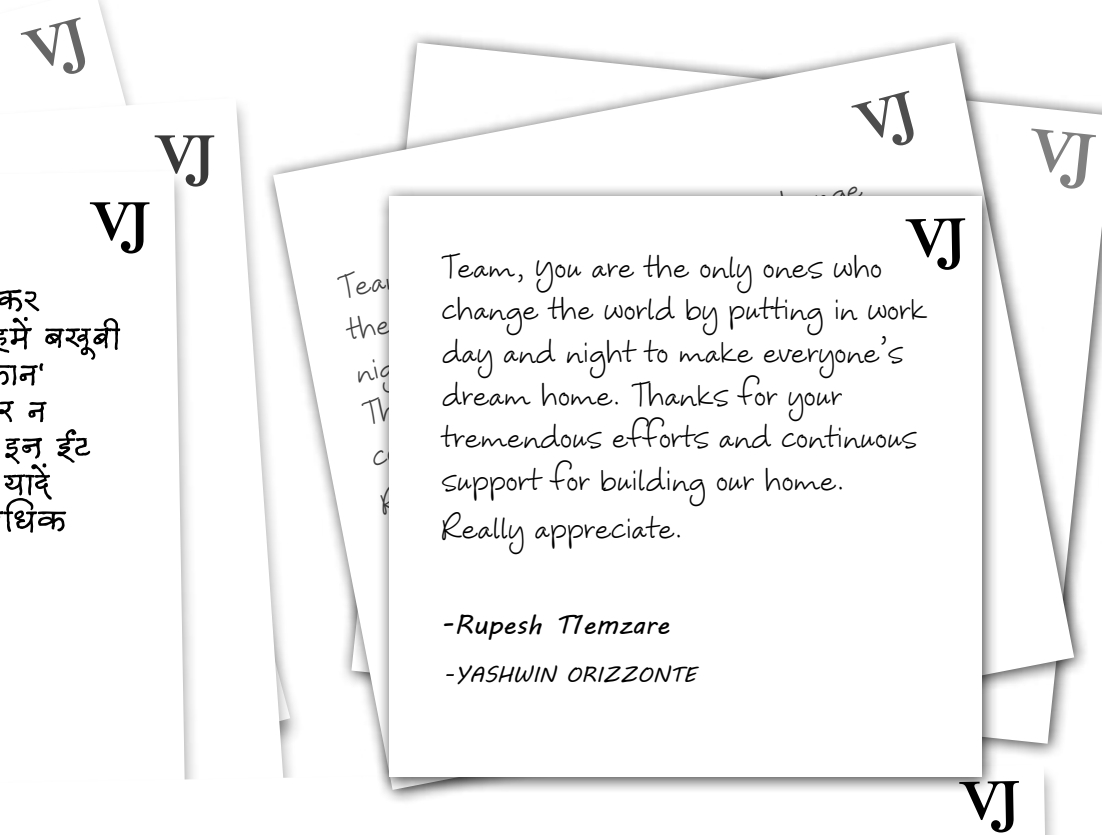 VJ
VJ
VJ
कर
हमें बखूबी
न
इन ईंट
यादें
VJ
VJ
VJ
Team, you are the only ones who
change the world by putting in work
day and night to make everyone's
dream home. Thanks for your
tremendous efforts and continuous
support for building our home.
Really appreciate.
-Rupesh Tlemzare
-YASHWIN ORIZZONTE
the
VJ